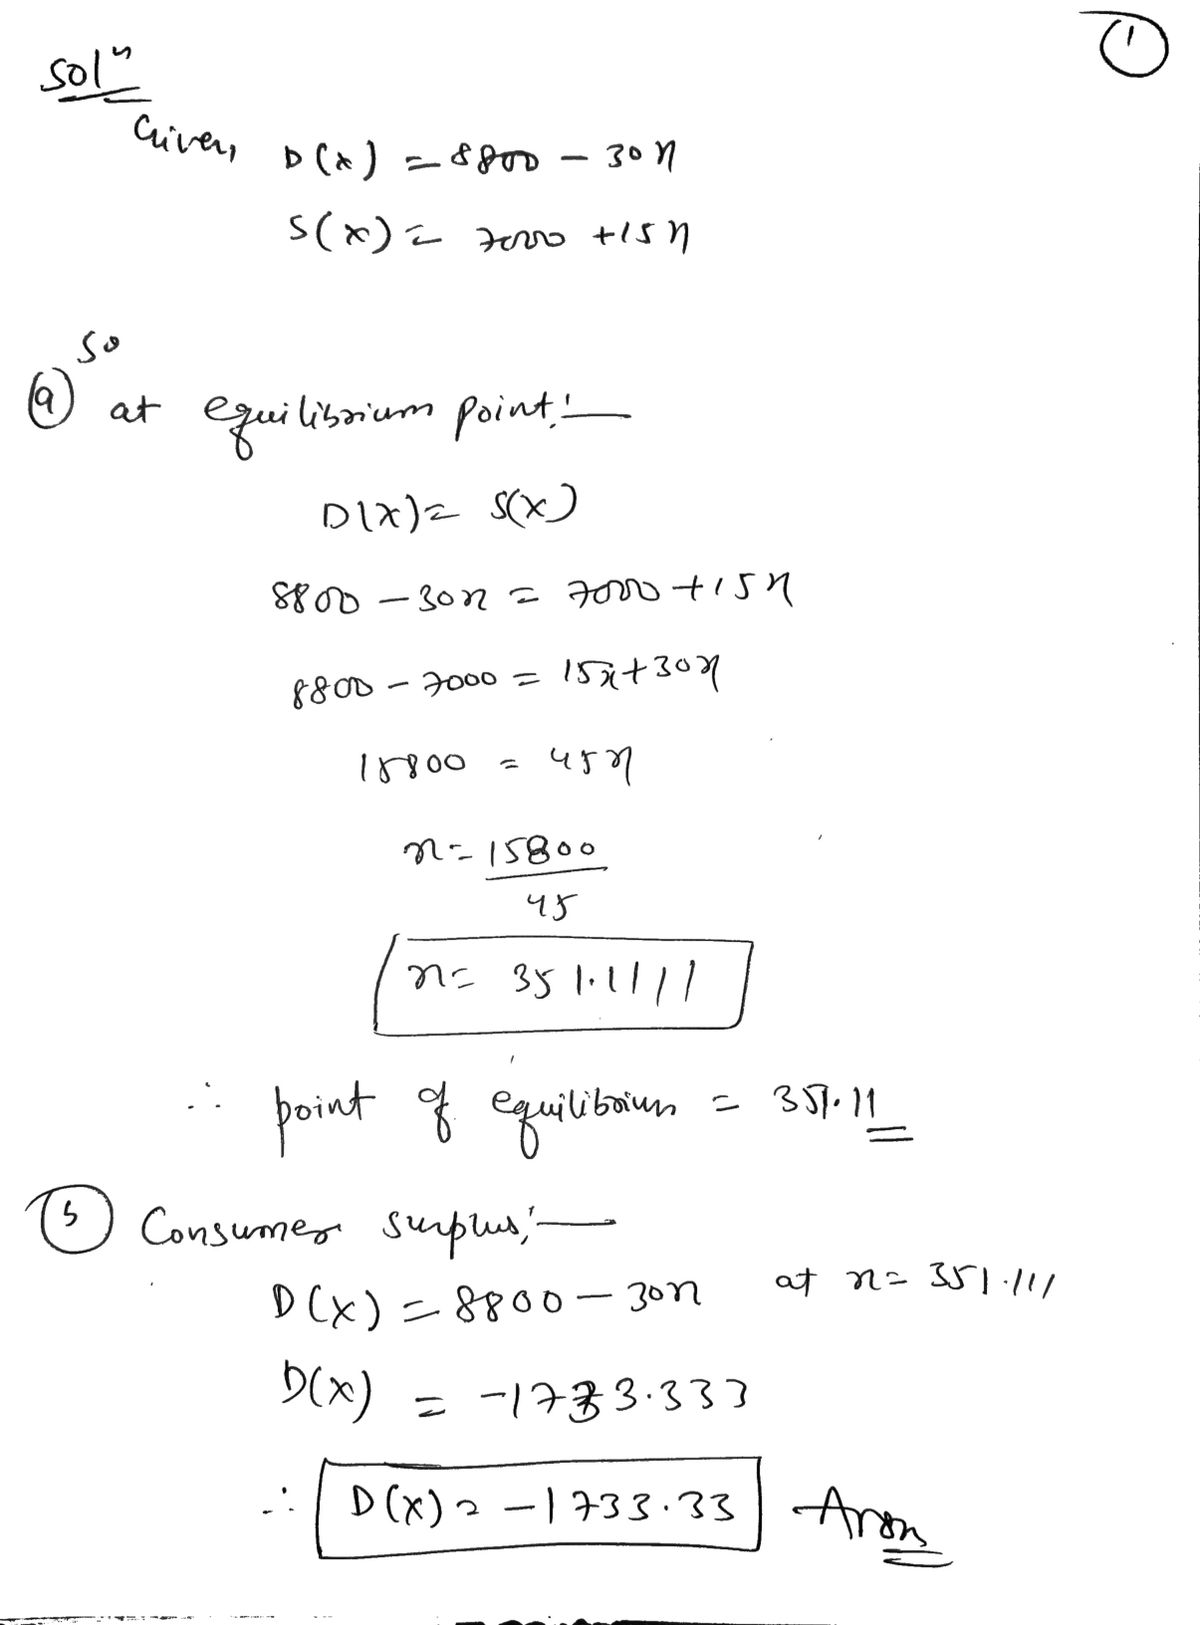 1
Solⁿ
Given, D(x) = 8800 - 30x
S(x) = 7000 + 15x
So
(a) at equilibrium point:—
D(x) = S(x)
8800 - 30x = 7000 + 15x
8800 - 7000 = 15x + 30x
15800 = 45x
x = 15800
45
x = 351.1111
∴ point of equilibrium = 351.11
(b) Consumer surplus:—
D(x) = 8800 - 30x at x = 351.111
D(x) = -1733.333
∴ D(x) = -1733.33 Ans